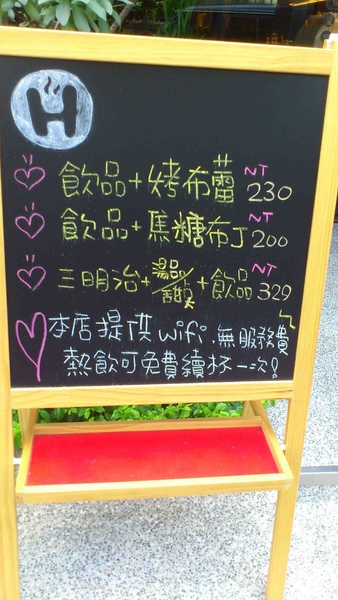 H
飲品+烤布蕾 NT 230
飲品+焦糖布丁 NT 200
三明治+湯品/甜點+飲品 NT 329
本店提供wifi.無服務費
熱飲可免費續杯一次!